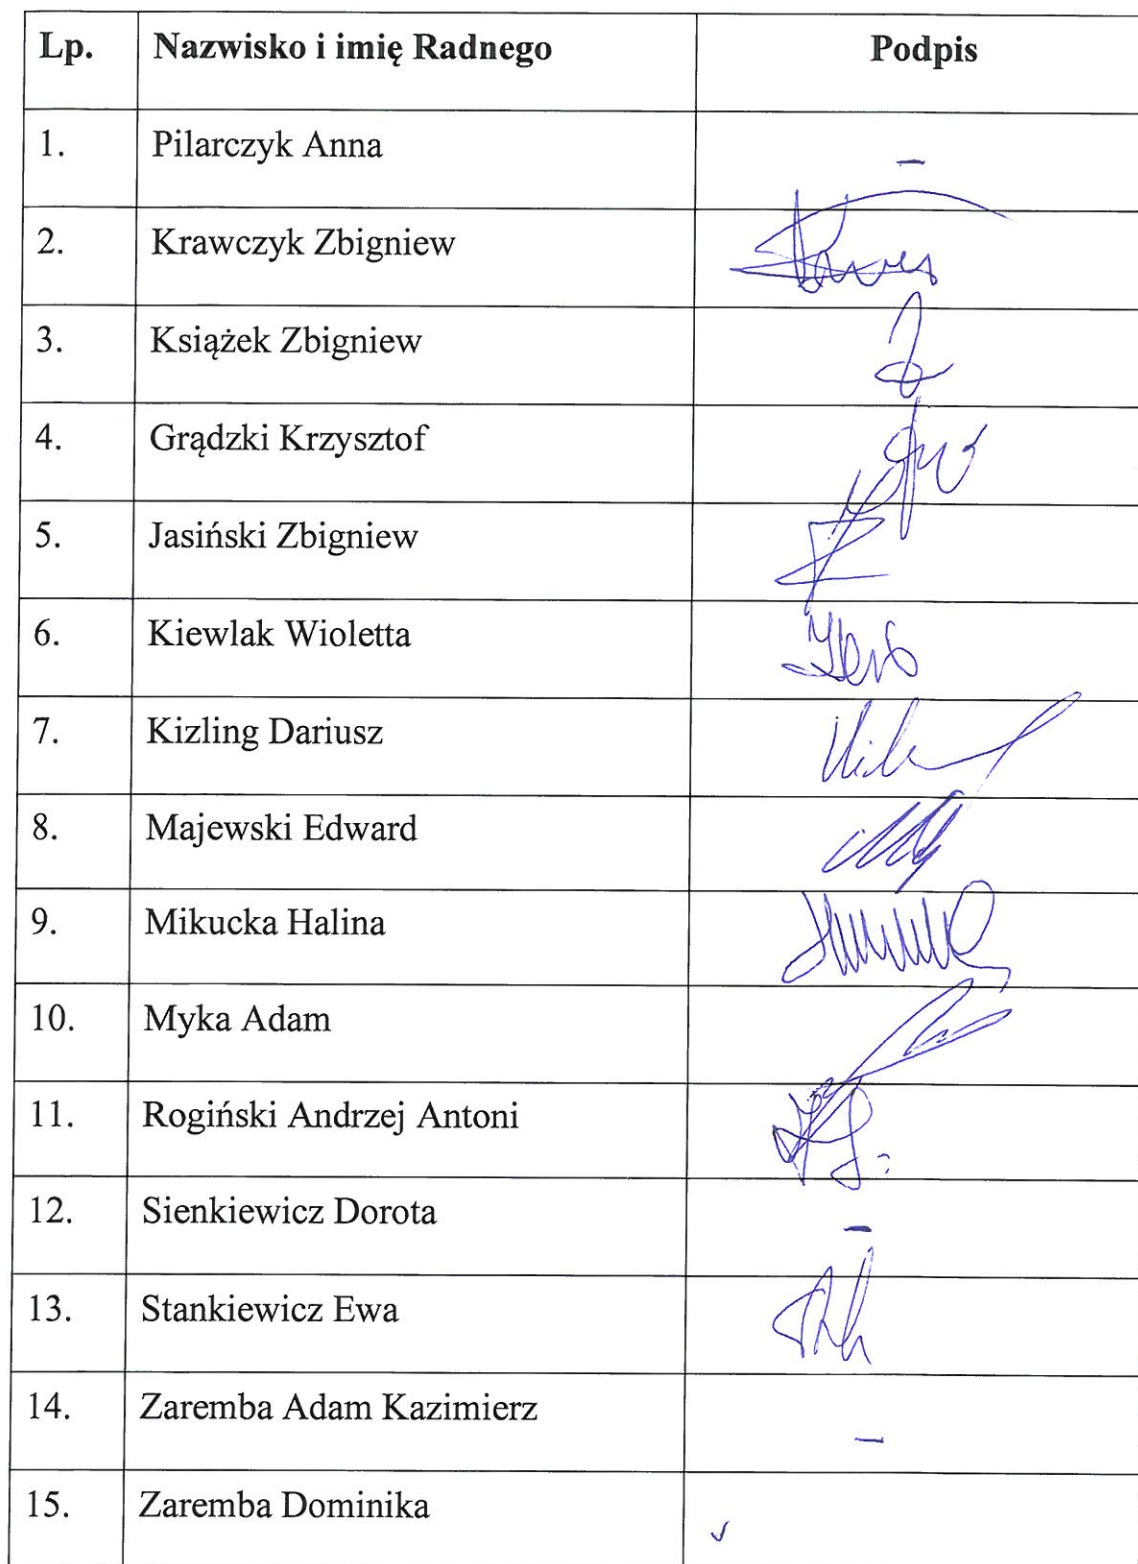 Lp. Nazwisko i imię Radnego Podpis
1. Pilarczyk Anna –
2. Krawczyk Zbigniew
3. Książek Zbigniew
4. Grądzki Krzysztof
5. Jasiński Zbigniew
6. Kiewlak Wioletta
7. Kizling Dariusz
8. Majewski Edward
9. Mikucka Halina
10. Myka Adam
11. Rogiński Andrzej Antoni
12. Sienkiewicz Dorota –
13. Stankiewicz Ewa
14. Zaremba Adam Kazimierz –
15. Zaremba Dominika ✓